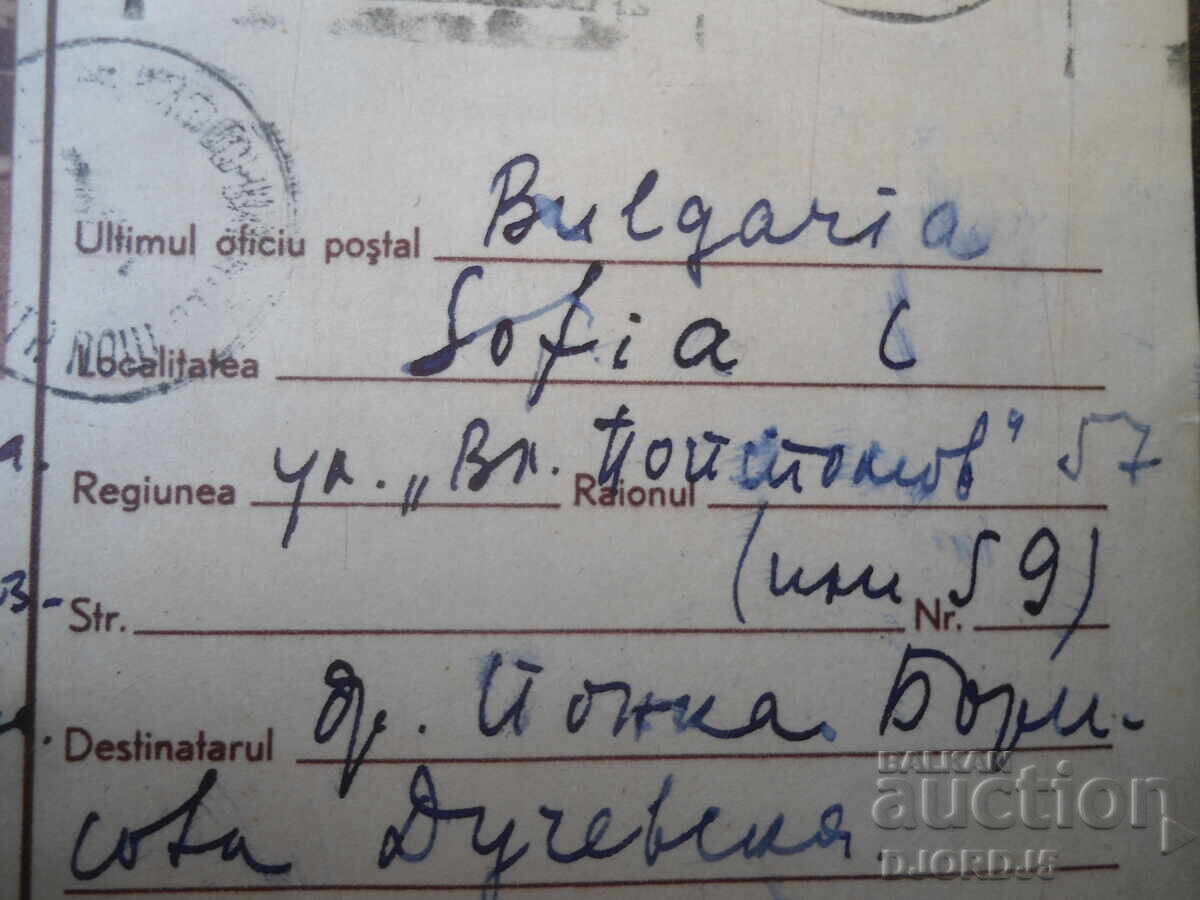 Ultimul oficiu poştal Bulgaria
Localitatea Sofia C
Regiunea ул. „Вл. Пойптомов" 57 Raionul
(или 59)
Str. Nr.
Destinatarul др. Йонка Бори-
сова Дучевска.
BALKAN
auction
DJORDJ5